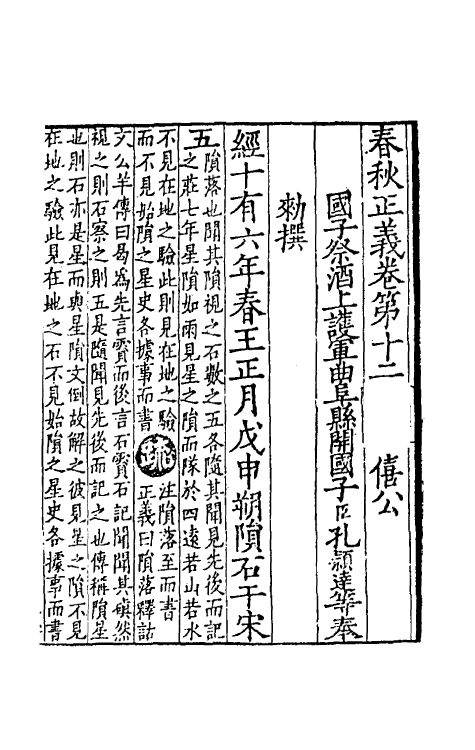 春秋正義卷第十二　僖公
國子祭酒上護軍曲阜縣開國子臣孔穎達等奉
勑撰
經十有六年春王正月戊申朔隕石于宋
五
隕落也聞其隕視之石數之五各隨其聞見先後而記
之莊七年星隕如雨見星之隕而隊於四遠若山若水
不見在地之驗此則見在地之驗
而不見始隕之星史各據事而書
疏
注隕落至而書
正義曰隕落釋詁
文公羊傳曰曷爲先言霣而後言石霣石記聞聞其磌然
視之則石察之則五是隨聞見先後而記之也傳稱隕星
也則石亦是星而與星隕文倒故解之彼見星之隕不見
在地之驗此見在地之石不見始隕之星史各據事而書